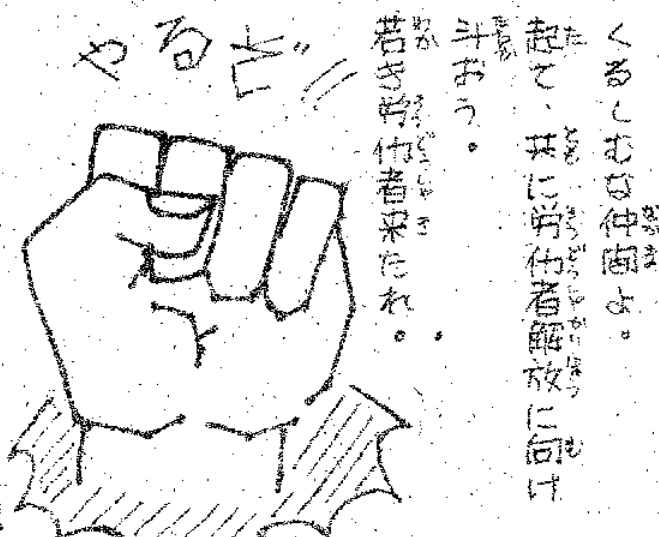 くるしむな仲間よ。
起て、共に労仂者解放に向け
斗おう。
若き労仂者来たれ。
やるぞ!!